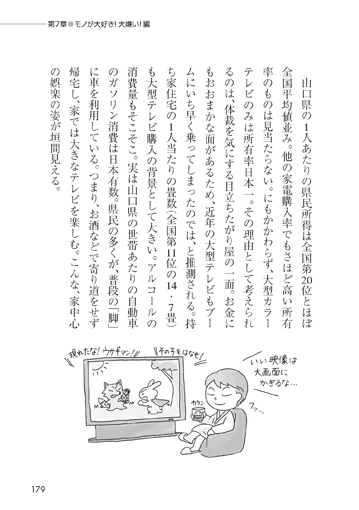 第7章●モノが大好き!大嫌い!編
山口県の1人あたりの県民所得は全国第20位とほぼ
全国平均値並み。他の家電購入率でもさほど高い所有
率のものは見当たらない。にもかかわらず、大型カラー
テレビのみは所有率日本一。その理由として考えられ
るのは、体裁を気にする目立ちたがり屋の一面。お金に
もおおまかな面があるため、近年の大型テレビもブー
ムにいち早く乗ってしまったのでは、と推測される。持
ち家住宅の1人当たりの畳数(全国第11位の14・7畳)
も大型テレビ購入の背景として大きい。アルコールの
消費量もそこそこ。実は山口県の世帯あたりの自動車
のガソリン消費は日本有数。県民の多くが、普段の「脚」
に車を利用している。つまり、お酒などで寄り道をせず
帰宅し、家では大きなテレビを楽しむ。こんな、家中心
の娯楽の姿が垣間見える。
現れたな!ウサギマン!
その子をはなせ!
いい映像は
大画面に
かぎるな…
フッ…
カラン
179